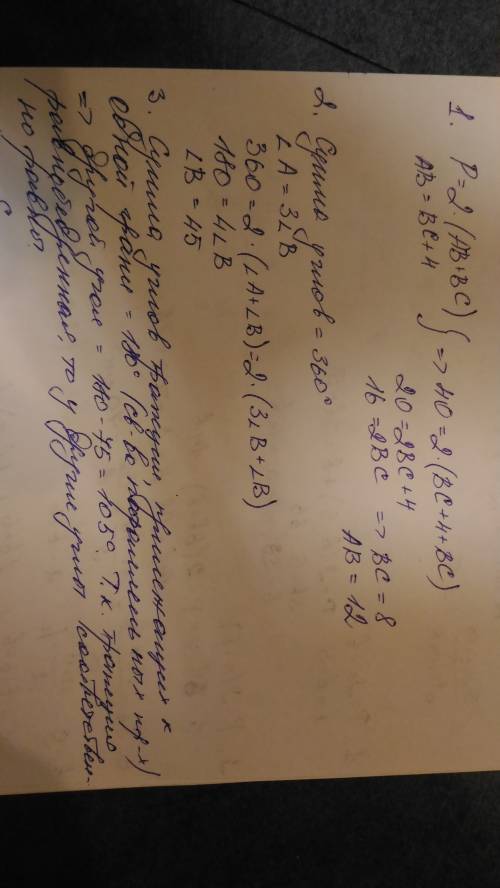 1. P = 2·(AB+BC) } => 40 = 2·(BC+4+BC)
AB = BC+4
20 = 2BC+4
16 = 2BC => BC = 8
AB = 12
2. Сумма углов = 360°
∠A = 3∠B
360 = 2·(∠A+∠B) = 2·(3∠B+∠B)
180 = 4∠B
∠B = 45
3. Сумма углов трапеции, прилежащих к
одной грани = 180° (св-во параллельных пр-х)
=> другой угол = 180-75 = 105°. Т.к. трапеция
равнобедренная, то у другие углы соответствен-
но равны.